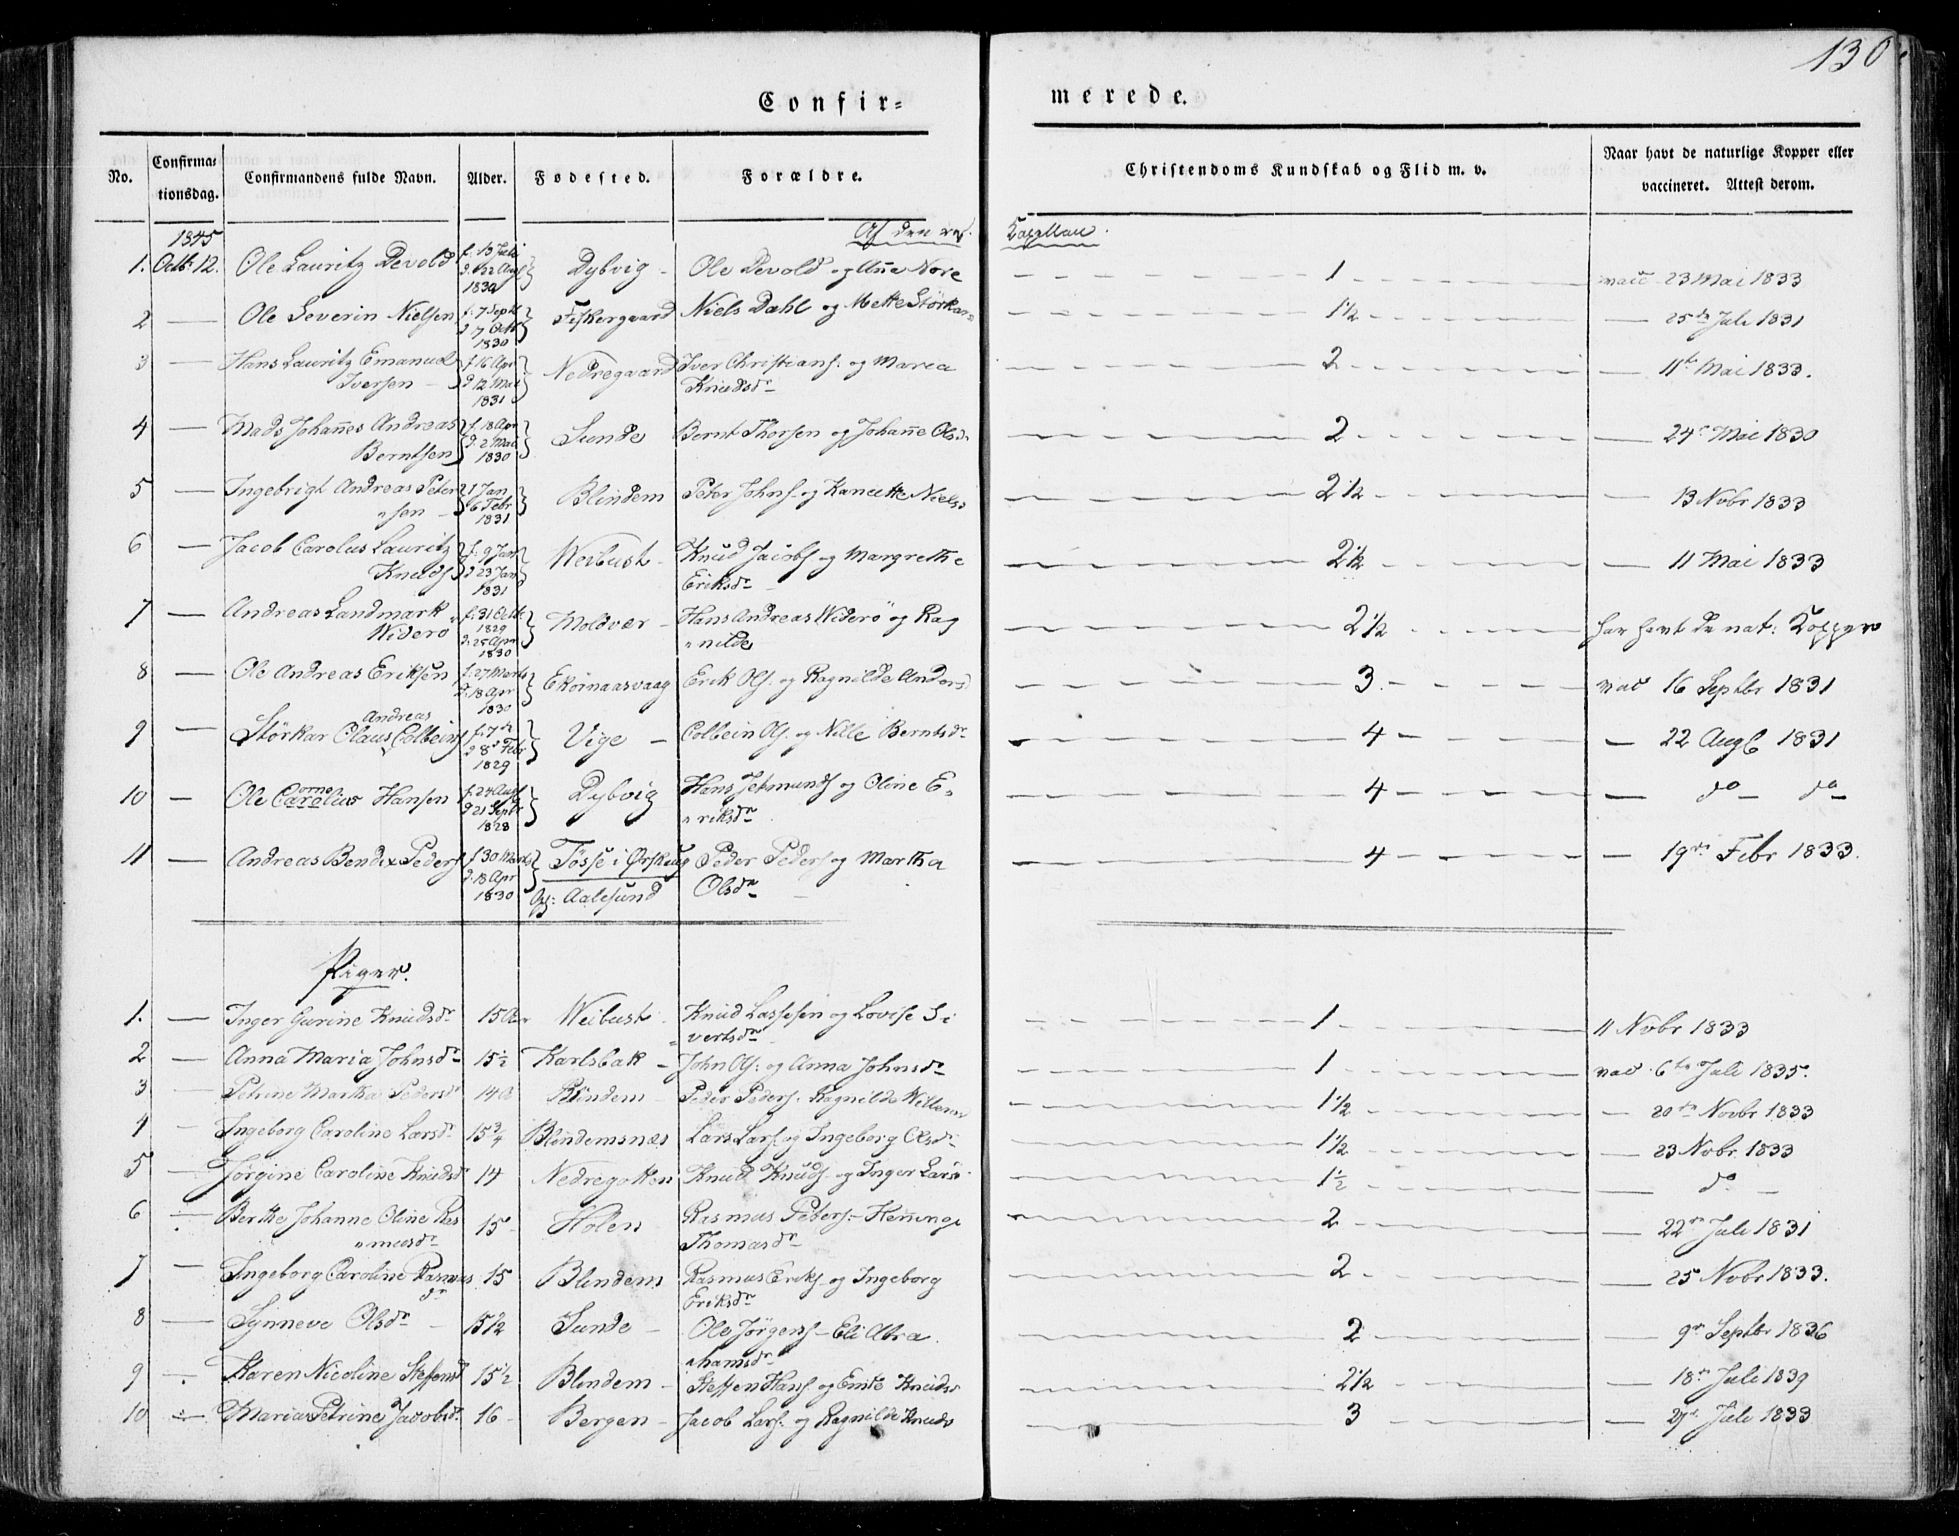 130.
Confir=
merede.
No.
Confirma=
tionsdag.
Confirmandens fulde Navn.
Alder.
Fødested.
Forældre.
Christendoms Kundskab og Flid m. v.
Naar havt de naturlige Kopper eller
vaccineret. Attest derom.
1845
Af den res.
Kapellan
1. Octbr 12. Ole Lauritz Devold f. 13 Juli d. 22 Aug 1830 Dybvig - Ole Devold og Anne Nore 1 vacc 23 Mai 1833
2 — Ole Severin Nielsen f. 7 Sept d. 7 Octb 1830 Fiskergaard Niels Dahl og Mette Störkars 1½ — 25de Juli 1831
3 — Hans Lauritz Emanuel f. 16 Apr Nedregaard Iver Christians. og Maria 2 — 11te Mai 1833.
Iversen - d. 12 Mai 1831 Knudsdr
4 — Mads Johannes Andreas f. 18 Apr Sunde Bernt Thorsen og Johanne Olsdr 2 — 24de Mai 1830
Berntsen d. 2 Mai 1830
5 — Ingebrigt Andreas Peter 1 Jan Blindem Peter Johns. og Kanutte Niels 2½ — 13 Novbr 1833
"sen - 6 Febr 1831
6 — Jacob Carolus Lauritz f. 9 Jan Weibust - Knud Jacobs og Margrethe 2½ — 11 Mai 1833
Knuds d. 23 Jan 1831 Eriksdr
7 — Andreas Landmark f. 31 Octb 1829 Moldvær - Hans Andreas Widerö og Rag 2½ har havt de nat: Kopper
Widerö d. 25 Apr 1830 "nilde
8 — Ole Andreas Eriksen f. 27 Marts d. 18 Apr 1830 Ekornaasvaag Erik Ols. og Ragnilde Anders 3. vac 16 Septbr 1831
Andreas
9 — Störkar Claus Colbeins f. 7de d. 8de Febr 1829 Vige — Colbein Ols. og Nille Berntsdr 4 — 22 Augt 1831
10 — Ole Cornelius Hansen f. 24 Aug d. 21 Septbr 1828 Dybvig Hans Jetmunds og Oline E= 4 — do — do
"riksdr
11 — Andreas Bendix Peders f. 30 Marts d. 18 Apr 1830 Tösse i Ørskoug Peder Peders og Martha 4 — 19de Febr 1833.
Op: Aalesund Olsdr
Piger.
1. — Inger Gurine Knudsdr 15 Aar Weibust - Knud Lassesen og Lovise Si 1 11 Novbr 1833
"vertsdr
2 — Anna Maria Johnsdr 15½ Karlsbak - John Ols: og Anna Johnsdr 1 vac 6te Juli 1835.
3 — Petrine Martha Pedersdr 14 A Blindem - Peder Peders. Ragnilde Willums 1½ — 20de Novbr 1833
4 — Ingeborg Caroline Larsdr 15¾ Blindemsnæs Lars Lars. og Ingeborg Olsdr 1½ — 23 Novbr 1833
5 — Jörgine Caroline Knudsdr 14 Nedregotten Knud Knuds. og Inger Lars 1½ — do —
6 — Berthe Johanne Oline Ras 15 - Holen - Rasmus Peders:- Henninge 2 — 22de Juli 1831
"musdr Thomasdr
7 — Ingeborg Caroline Rasmus 15 Blindem Rasmus Eriks. og Ingeborg 2 — 25 Novbr 1833.
dr Eriksdr
8 — Synneve Olsdr - 15½ Sunde - Ole Jörgens - Eli Abra 2 — 9de Septbr 1836
"hamsdr
9 — Karen Nicoline Steffensd 15½ Blindem - Steffen Hans og Emte Knuds 2½ — 18de Juli 1839
10 — Maria Petrine Jacobsd. 16 - Bergen - Jacob Lars: og Ragnilde Knuds 3 — 27de Juli 1833